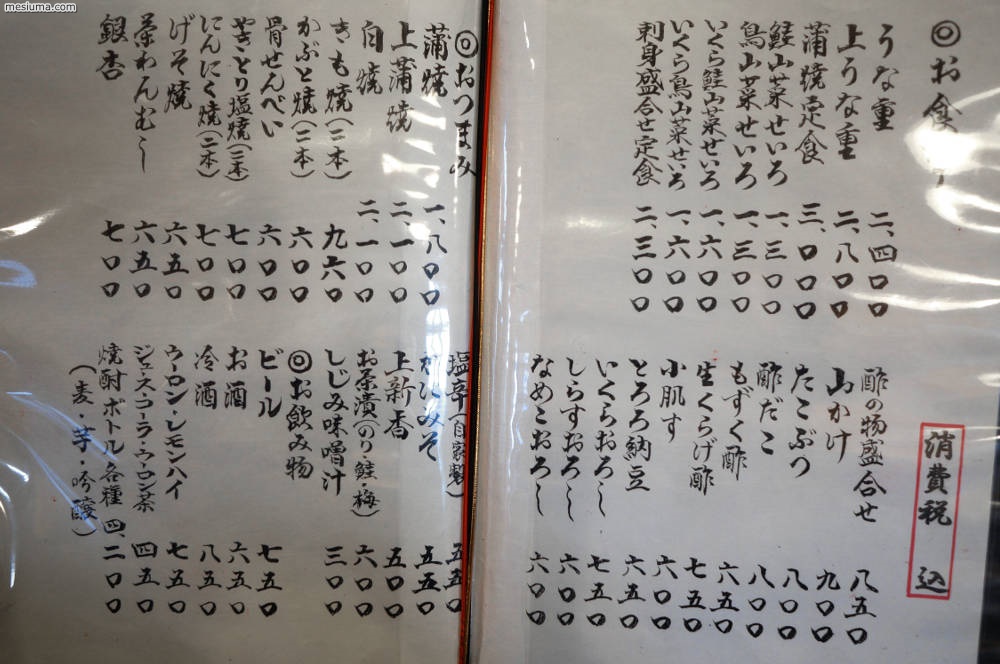 mesiuma.com
◎お食事
うな重 二、四〇〇
上うな重 二、八〇〇
蒲焼定食 三、〇〇〇
鮭山菜せいろ 一、三〇〇
鳥山菜せいろ 一、三〇〇
いくら鮭山菜せいろ 一、六〇〇
いくら鳥山菜せいろ 一、六〇〇
刺身盛合せ定食 二、三〇〇
消費税込
酢の物盛合せ 八五〇
山かけ 九〇〇
たこぶつ 八〇〇
酢だこ 八〇〇
もずく酢 六五〇
生くらげ酢 七五〇
小肌す 六〇〇
とろろ納豆 六五〇
いくらおろし 七五〇
しらすおろし 六〇〇
なめこおろし 六〇〇
◎おつまみ
蒲焼 一、八〇〇
上蒲焼 二、一〇〇
白焼 二、一〇〇
きも焼(二本) 九六〇
かぶと焼(二本) 六〇〇
骨せんべい 六〇〇
やきとり塩焼(二本) 七〇〇
にんにく焼(二本) 七〇〇
げそ焼 六五〇
茶わんむし 六五〇
銀杏 七〇〇
塩辛(自家製) 五五〇
かにみそ 五五〇
上新香 五〇〇
お茶漬(のり・鮭・梅) 六〇〇
しじみ味噌汁 三〇〇
◎お飲み物
ビール 七五〇
お酒 六五〇
冷酒 八五〇
ウーロン・レモンハイ 七五〇
ジュース・コーラ・ウーロン茶 四五〇
焼酎ボトル各種 四、二〇〇
(麦・芋・吟醸)